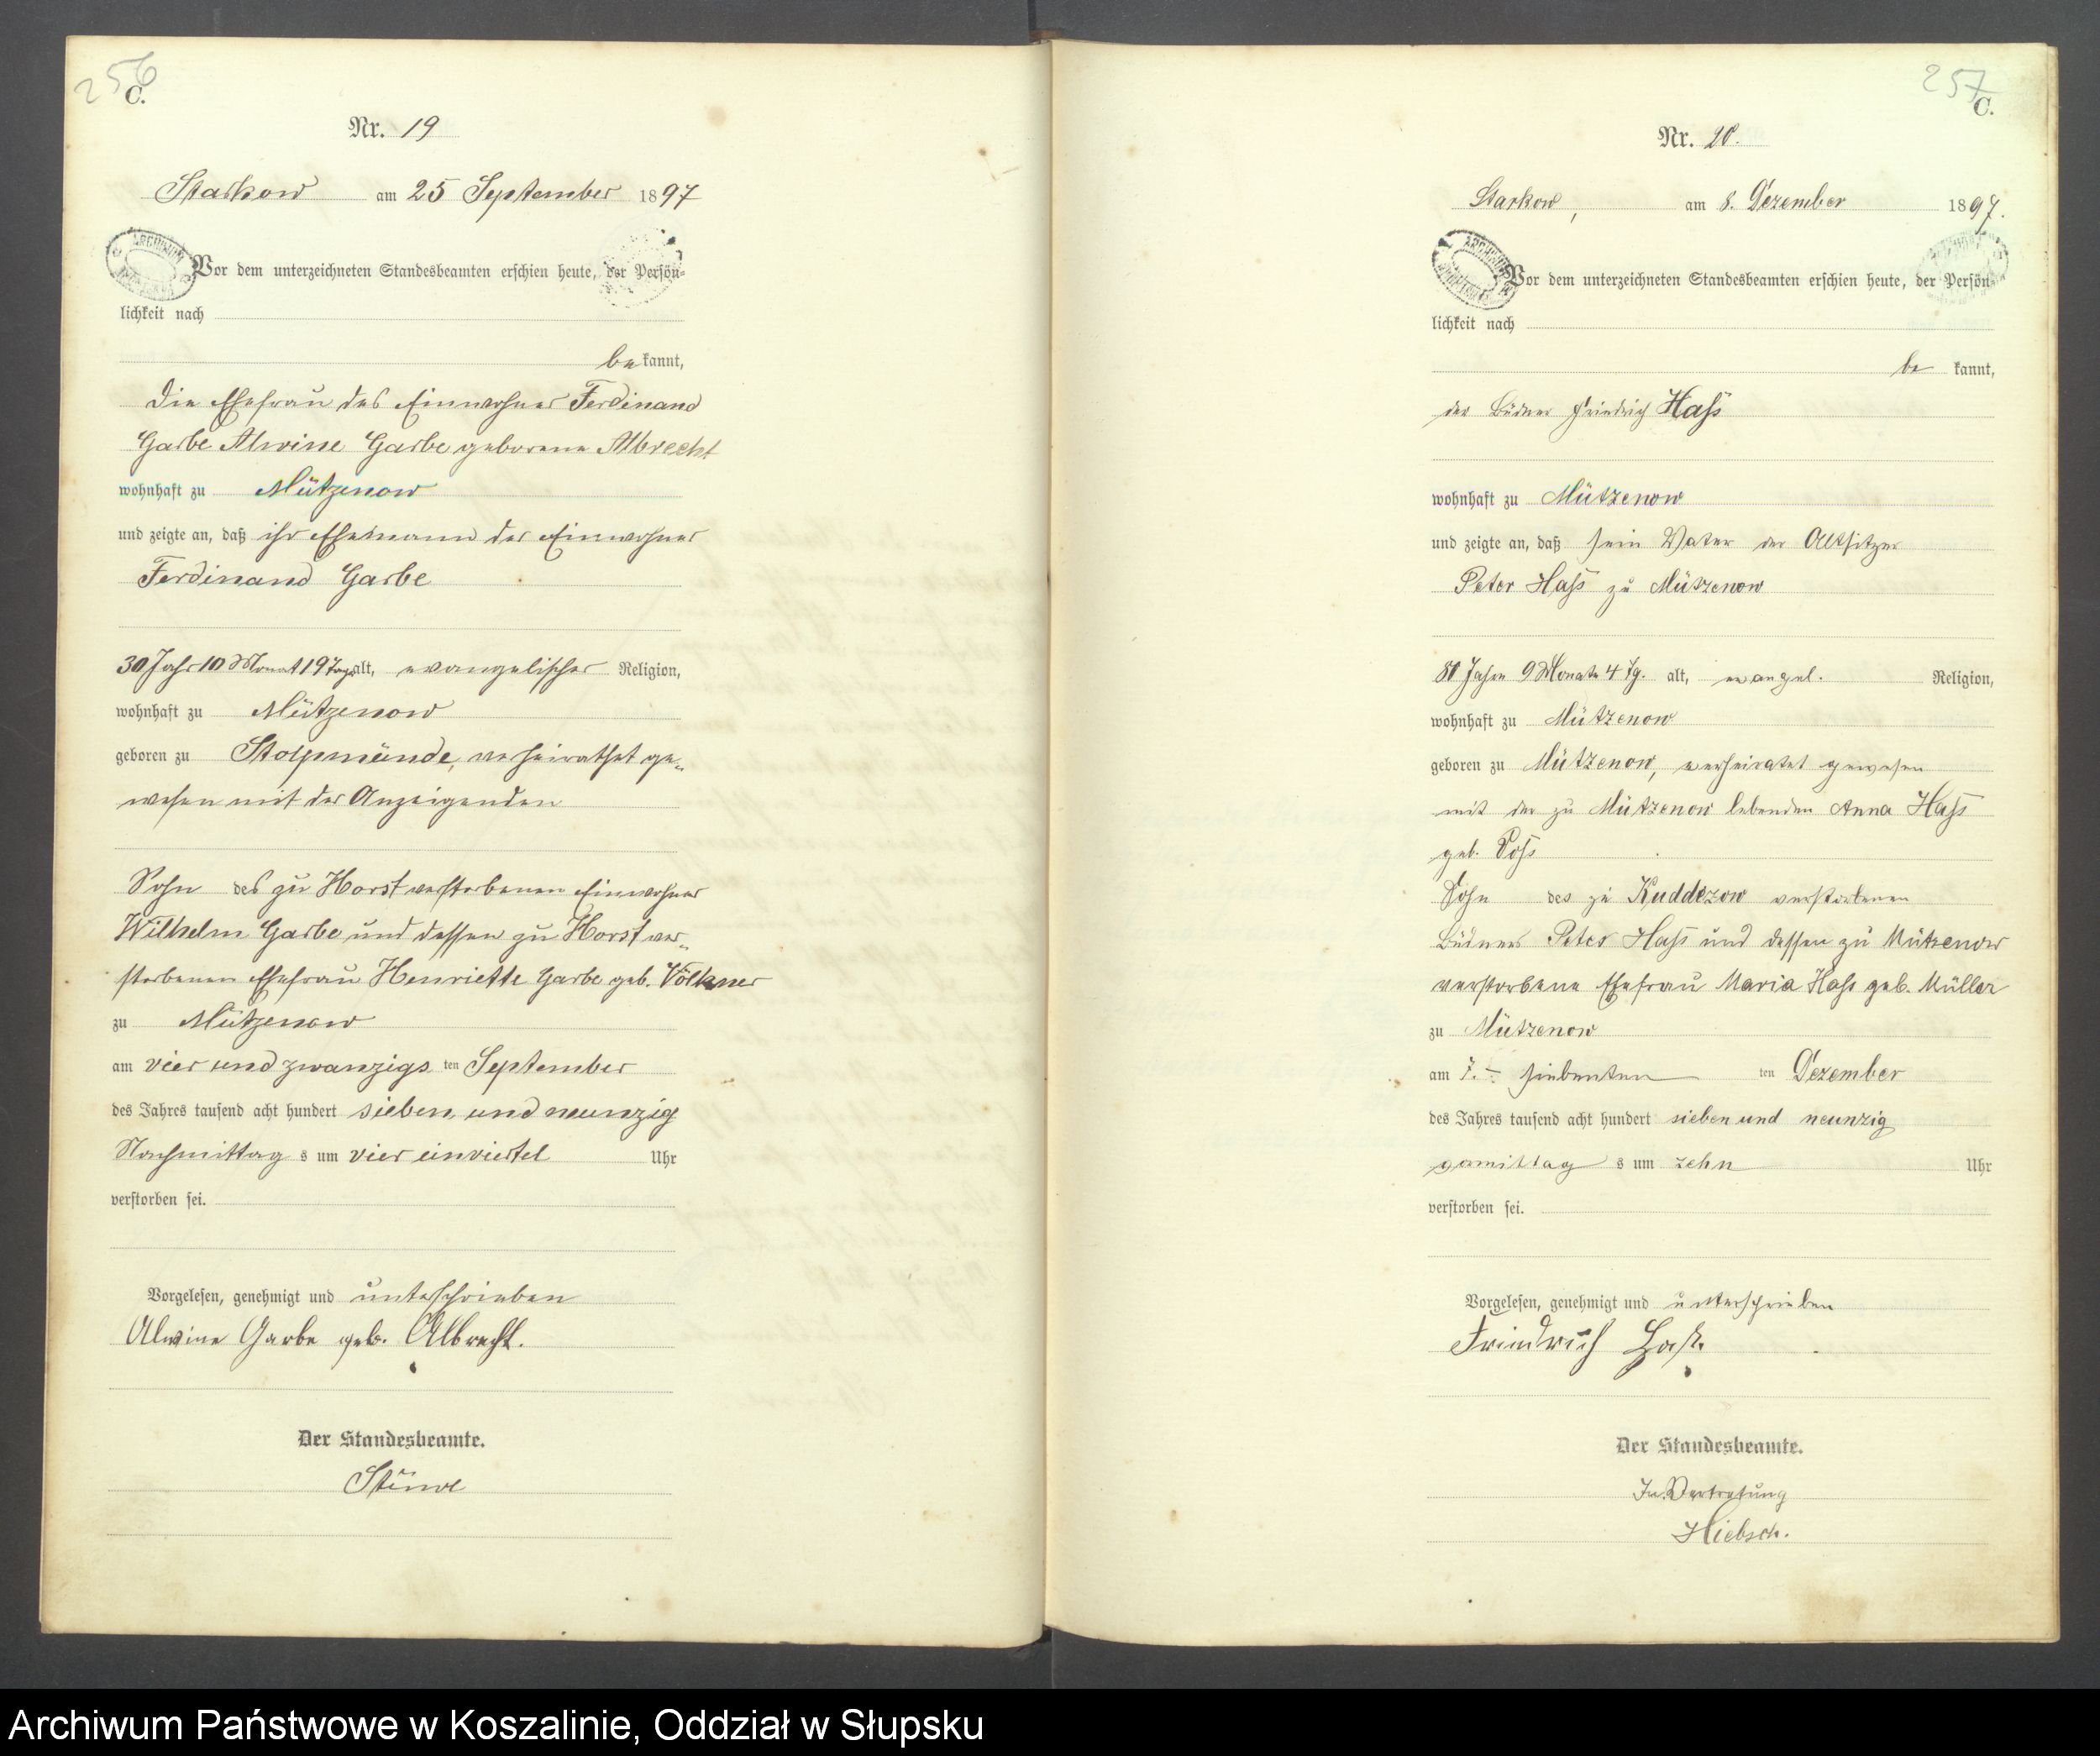 256
C.
Nr. 19
Starkow am 25 September 1897
Vor dem unterzeichneten Standesbeamten erschien heute, der Persön-
lichkeit nach
bekannt,
die Ehefrau des Einwohner Ferdinand
Garbe Alwine Garbe geborene Albrecht
wohnhaft zu Mützenow
und zeigte an, daß ihr Ehemann der Einwohner
Ferdinand Garbe
30 Jahr 10 Monat 19 Tage alt, evangelischer Religion,
wohnhaft zu Mützenow
geboren zu Stolpmünde, verheirathet ge-
wesen mit der Anzeigenden
Sohn des zu Horst verstorbenen Einwohner
Wilhelm Garbe und dessen zu Horst ver-
storbenen Ehefrau Henriette Garbe geb. Völkner
zu Mützenow
am vier und zwanzigs ten September
des Jahres tausend acht hundert sieben und neunzig
Nachmittag s um vier einviertel Uhr
verstorben sei.
Vorgelesen, genehmigt und unterschrieben
Alwine Garbe geb. Albrecht.
Der Standesbeamte.
Stüwe
257
C.
Nr. 20.
Starkow, am 8. Dezember 1897.
Vor dem unterzeichneten Standesbeamten erschien heute, der Persön-
lichkeit nach
be kannt,
der Büdner Friedrich Hass
wohnhaft zu Mützenow
und zeigte an, daß sein Vater der Altsitzer
Peter Hass zu Mützenow
80 Jahre 9 Monate 4 Tg. alt, evangel. Religion,
wohnhaft zu Mützenow
geboren zu Mützenow, verheiratet gewesen
mit der zu Mützenow lebenden Anna Hass
geb. Voss
Sohn des zu Kuddezow verstorbenen
Büdners Peter Hass und dessen zu Mützenow
verstorbene Ehefrau Maria Hass geb. Müller
zu Mützenow
am 7. - siebenten ten Dezember
des Jahres tausend acht hundert sieben und neunzig
Vormittag s um zehn Uhr
verstorben sei.
Vorgelesen, genehmigt und unterschrieben
Friedrich Haß.
Der Standesbeamte.
In Vertretung
Hiebsch.
Archiwum Państwowe w Koszalinie, Oddział w Słupsku